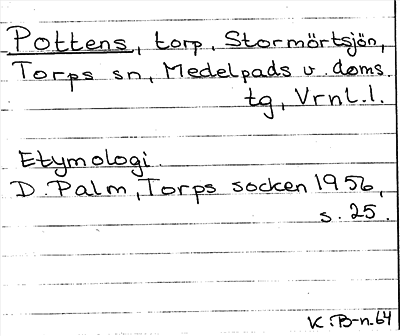 Pottens, torp, Stormörtsjön,
Torps sn, Medelpads v. doms.
tg, Vrnl.l.
Etymologi.
D. Palm, Torps socken 1956,
s. 25.
K. B-n. 64